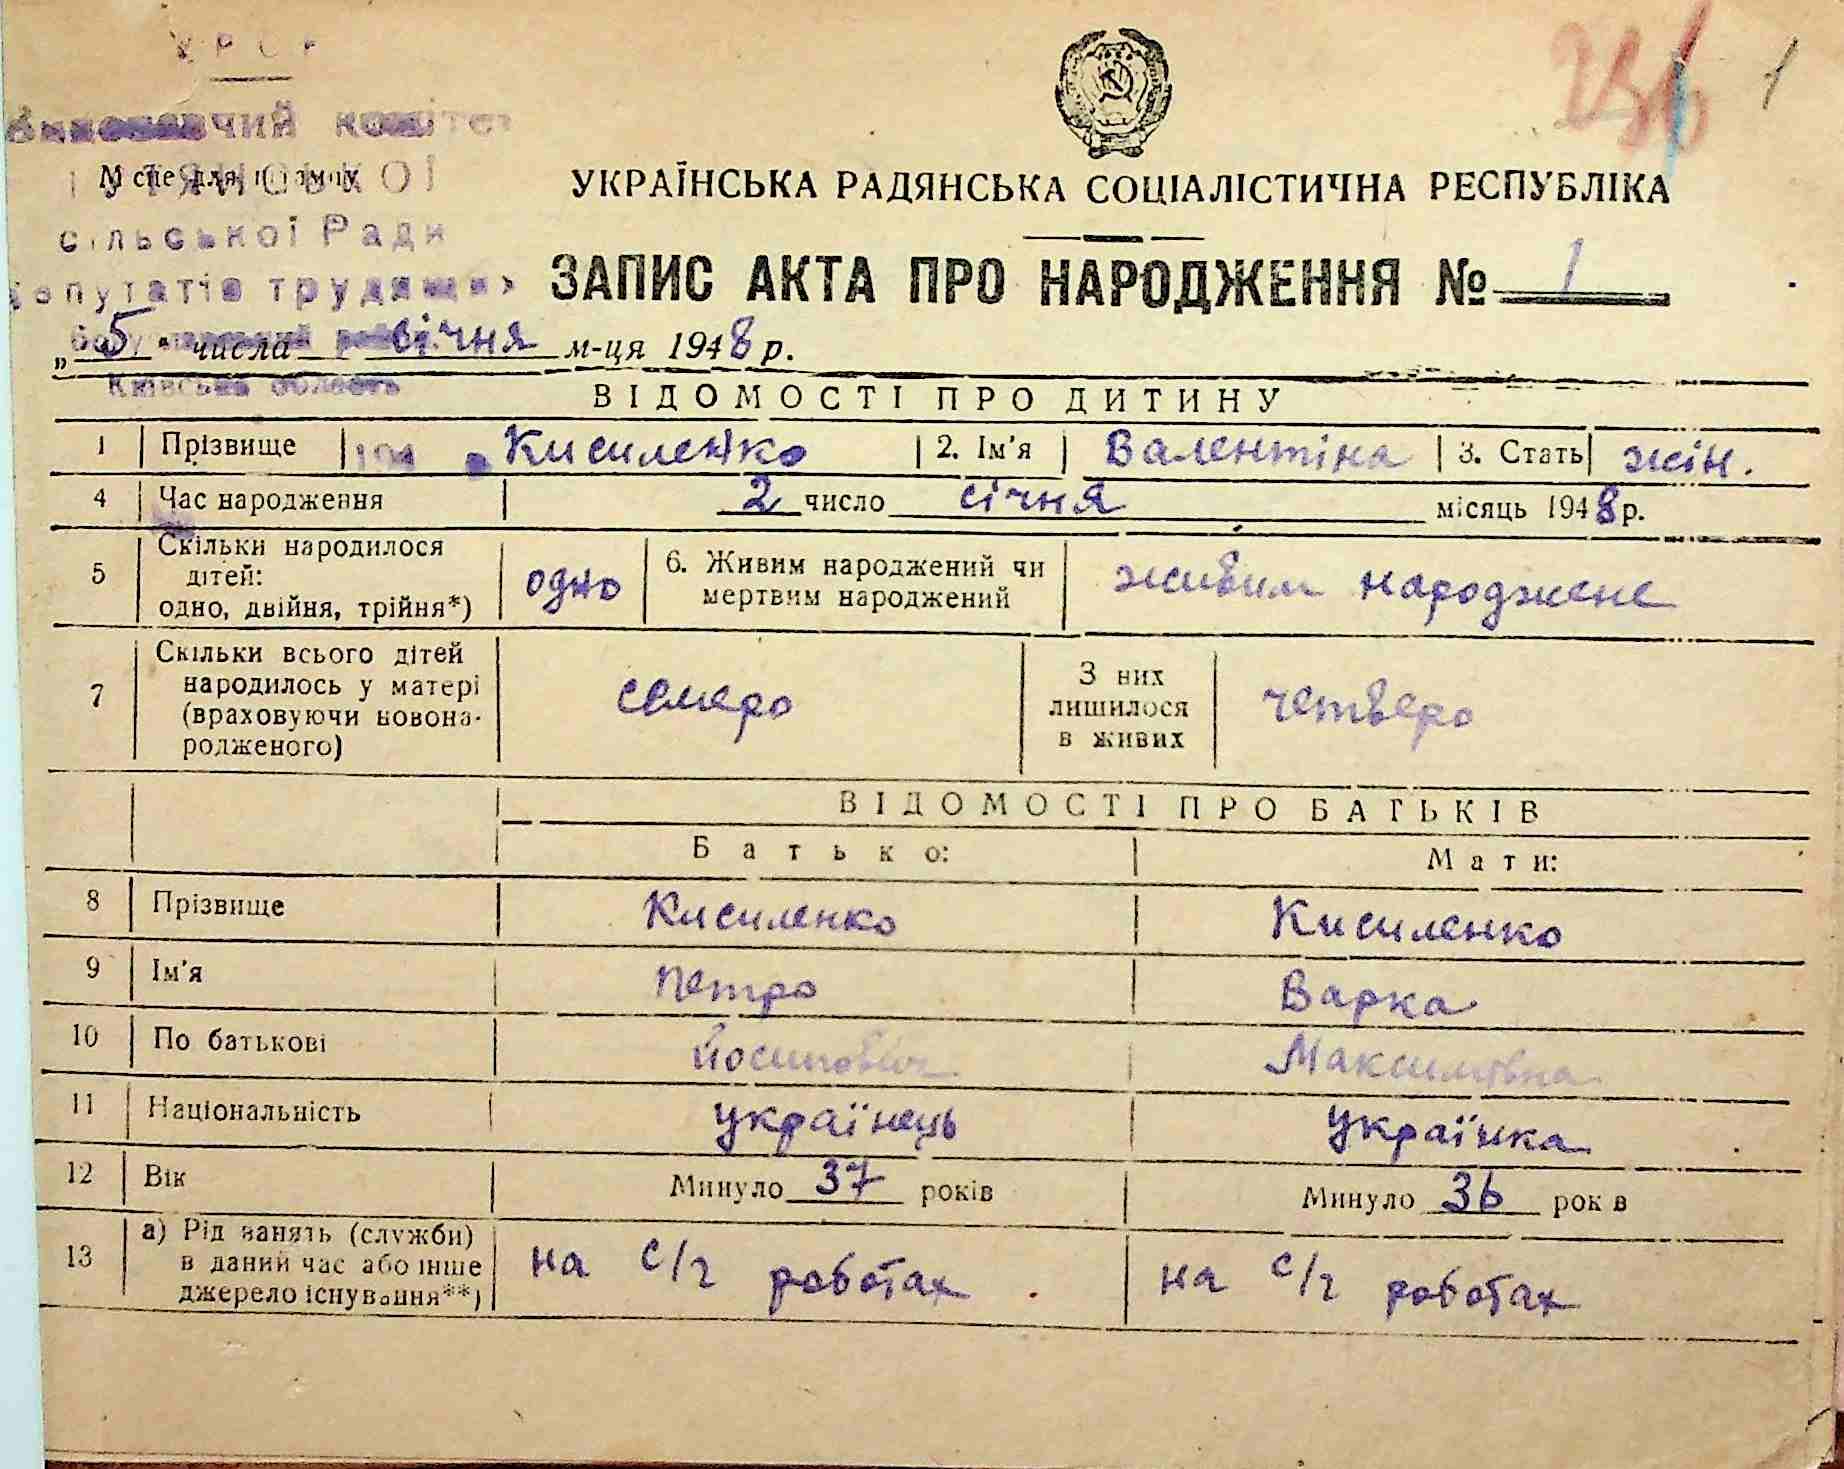 УРСР
Виконавчий комітет
Місце для штампу
сільської Ради
депутатів трудящих
Київська область
236 1
УКРАЇНСЬКА РАДЯНСЬКА СОЦІАЛІСТИЧНА РЕСПУБЛІКА
ЗАПИС АКТА ПРО НАРОДЖЕННЯ № 1
„5" числа січня м-ця 1948 р.
ВІДОМОСТІ ПРО ДИТИНУ
1 Прізвище 194 Кисиленко 2. Ім'я Валентіна 3. Стать жін.
4 Час народження 2 число січня місяць 1948 р.
5 Скільки народилося дітей: одно, двійня, трійня*) одно 6. Живим народжений чи мертвим народжений живим народжене
7 Скільки всього дітей народилось у матері (враховуючи новонародженого) семеро З них лишилося в живих четверо
ВІДОМОСТІ ПРО БАТЬКІВ
Батько: Мати:
8 Прізвище Кисиленко Кисиленко
9 Ім'я петро Варка
10 По батькові Йосипович Максимівна
11 Національність українець українка
12 Вік Минуло 37 років Минуло 36 рок в
13 а) Рід занять (служби) в даний час або інше джерело існування**) на с/г роботах на с/г роботах